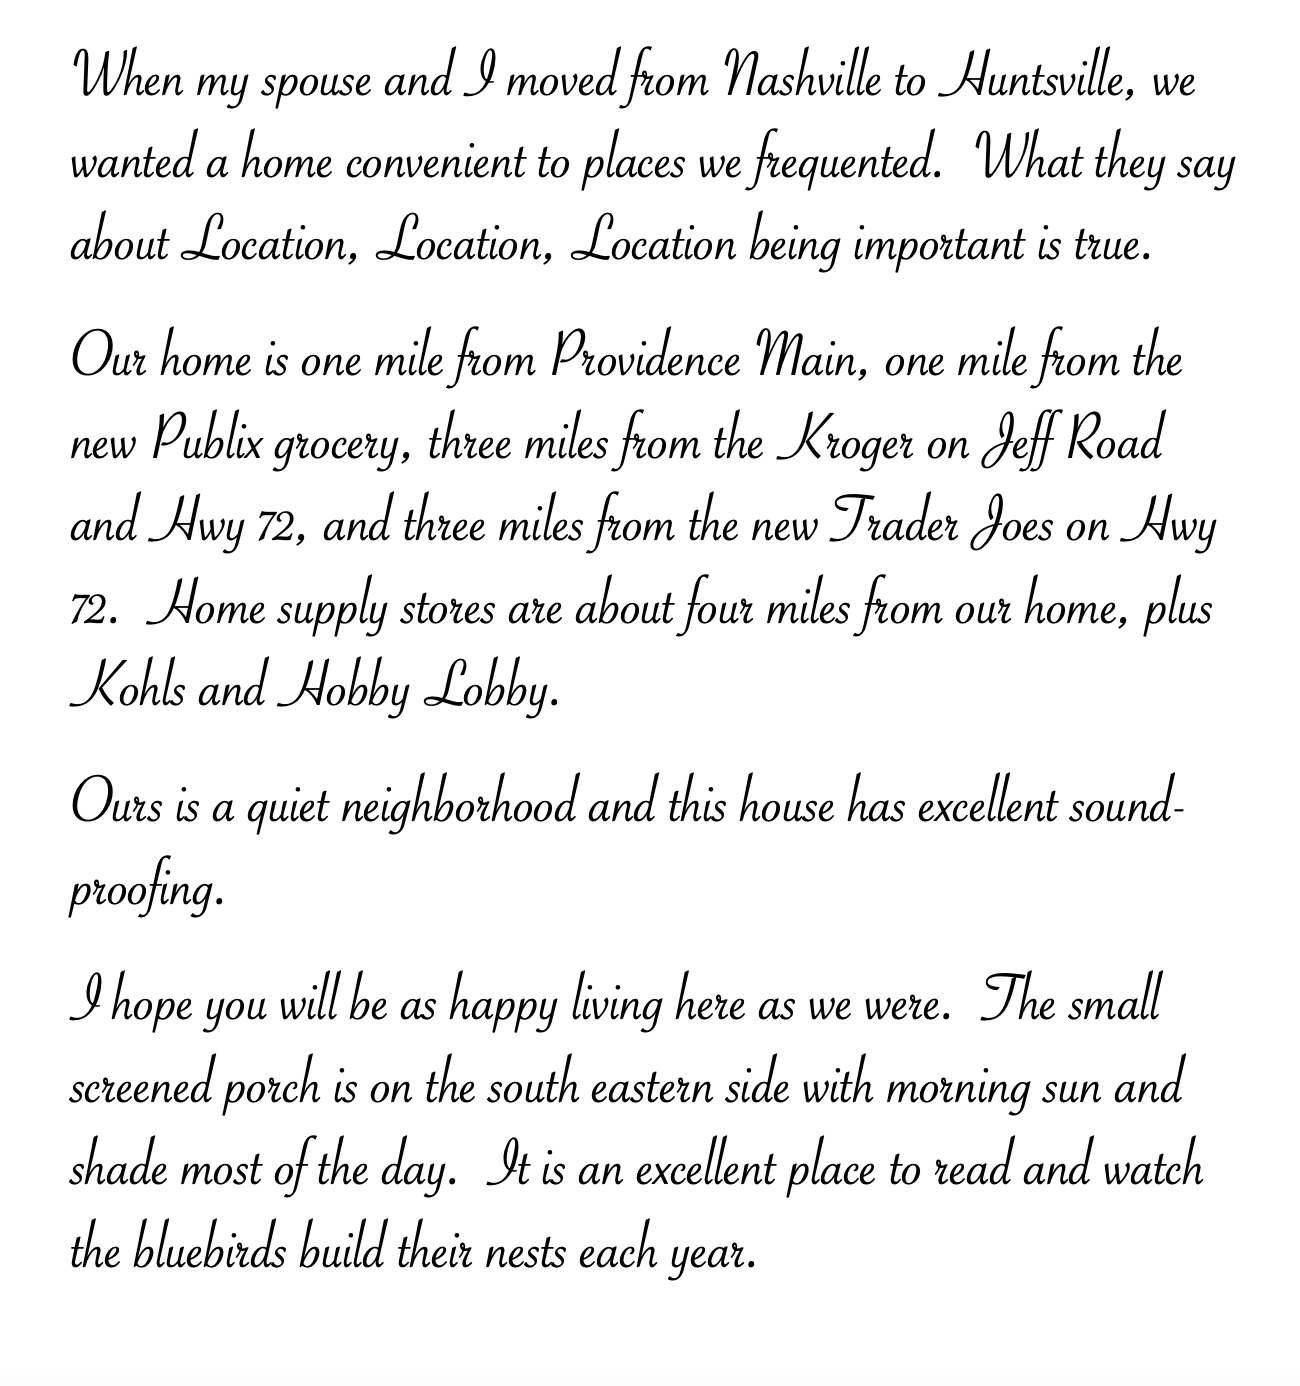 When my spouse and I moved from Nashville to Huntsville, we
wanted a home convenient to places we frequented.  What they say
about Location, Location, Location being important is true.
Our home is one mile from Providence Main, one mile from the
new Publix grocery, three miles from the Kroger on Jeff Road
and Hwy 72, and three miles from the new Trader Joes on Hwy
72.  Home supply stores are about four miles from our home, plus
Kohls and Hobby Lobby.
Ours is a quiet neighborhood and this house has excellent sound-
proofing.
I hope you will be as happy living here as we were.  The small
screened porch is on the south eastern side with morning sun and
shade most of the day.  It is an excellent place to read and watch
the bluebirds build their nests each year.